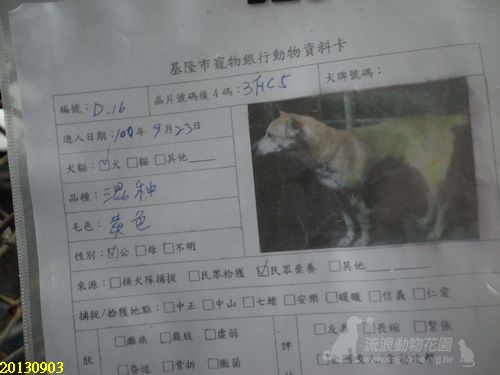 基隆市寵物銀行動物資料卡
編號：D.16 晶片號碼後4碼： 犬牌號碼：
進入日期：100年9月23日
犬貓：☑犬 □貓 □其他
品種：混种
毛色：黃色
性別：☑公 □母 □不明
來源：□捕犬隊捕捉 □民眾拾獲 ☑民眾棄養 □其他
捕捉/拾獲地點：□中正 □中山 □七堵 □安樂 □暖暖 □信義 □仁愛
□癱瘓 □截肢 □虛弱 □友善 □畏縮 □緊張
狀 □昏迷 □骨折 □黴菌 評
流浪動物花園
www.doghome.org.tw
20130903